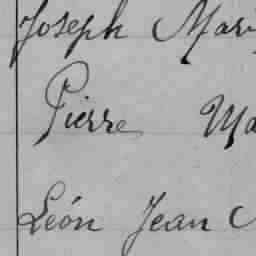 Joseph Mar
Pierre Ma
Léon Jean